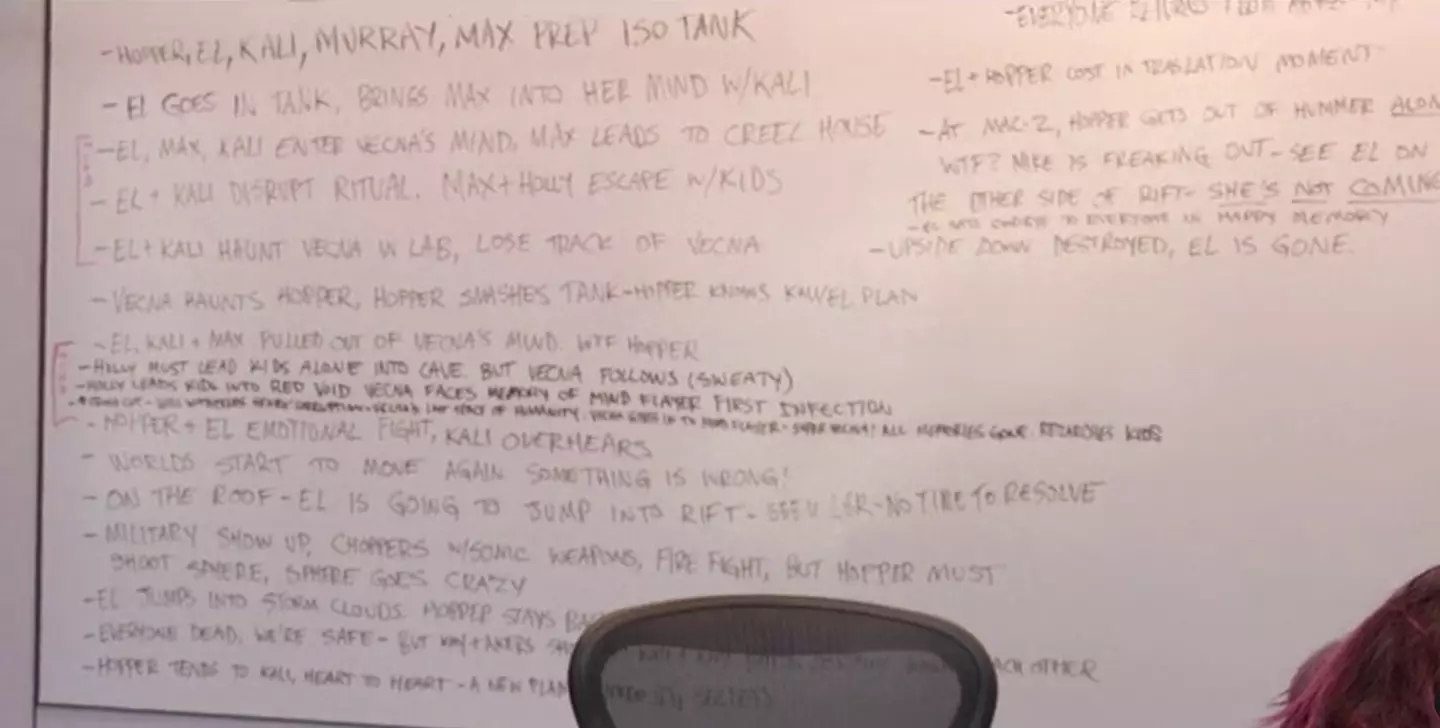 - HOPPER, EL, KALI, MURRAY, MAX PREP ISO TANK
- EL GOES IN TANK, BRINGS MAX INTO HER MIND W/KALI
- EL, MAX, KALI ENTER VECNA'S MIND, MAX LEADS TO CREEL HOUSE
- EL + KALI DISRUPT RITUAL. MAX + HOLLY ESCAPE W/KIDS
- EL + KALI HAUNT VECNA IN LAB, LOSE TRACK OF VECNA
- VECNA HAUNTS HOPPER, HOPPER SMASHES TANK - HOPPER KNOWS KALI/EL PLAN
- EL, KALI + MAX PULLED OUT OF VECNA'S MIND. WTF HOPPER
- HOLLY MUST LEAD KIDS ALONE INTO CAVE. BUT VECNA FOLLOWS (SWEATY)
- HOLLY LEADS KIDS INTO RED VOID VECNA FACES MEMORY OF MIND FLAYER FIRST INFECTION
OF HUMANITY. ALL MEMORIES GONE. KIDS
- HOPPER + EL EMOTIONAL FIGHT, KALI OVERHEARS
- WORLDS START TO MOVE AGAIN SOMETHING IS WRONG!
- ON THE ROOF - EL IS GOING TO JUMP INTO RIFT - NO TIME TO RESOLVE
- MILITARY SHOW UP, CHOPPERS W/SONIC WEAPONS, FIRE FIGHT, BUT HOPPER MUST
SHOOT SPHERE, SPHERE GOES CRAZY
- EL JUMPS INTO STORM CLOUDS. HOPPER STAYS
- EVERYONE DEAD, WE'RE SAFE - BUT EACH OTHER
- HOPPER TENDS TO KALI, HEART TO HEART - A NEW PLAN
- EVERYONE
- EL + HOPPER LOST IN TRASLATION MOMENT
- AT MAC-Z, HOPPER GETS OUT OF HUMMER
WTF? MIKE IS FREAKING OUT - SEE EL ON
THE OTHER SIDE OF RIFT - SHE'S NOT COMING
- EL TO EVERYONE IN HAPPY MEMORY
- UPSIDE DOWN DESTROYED, EL IS GONE.